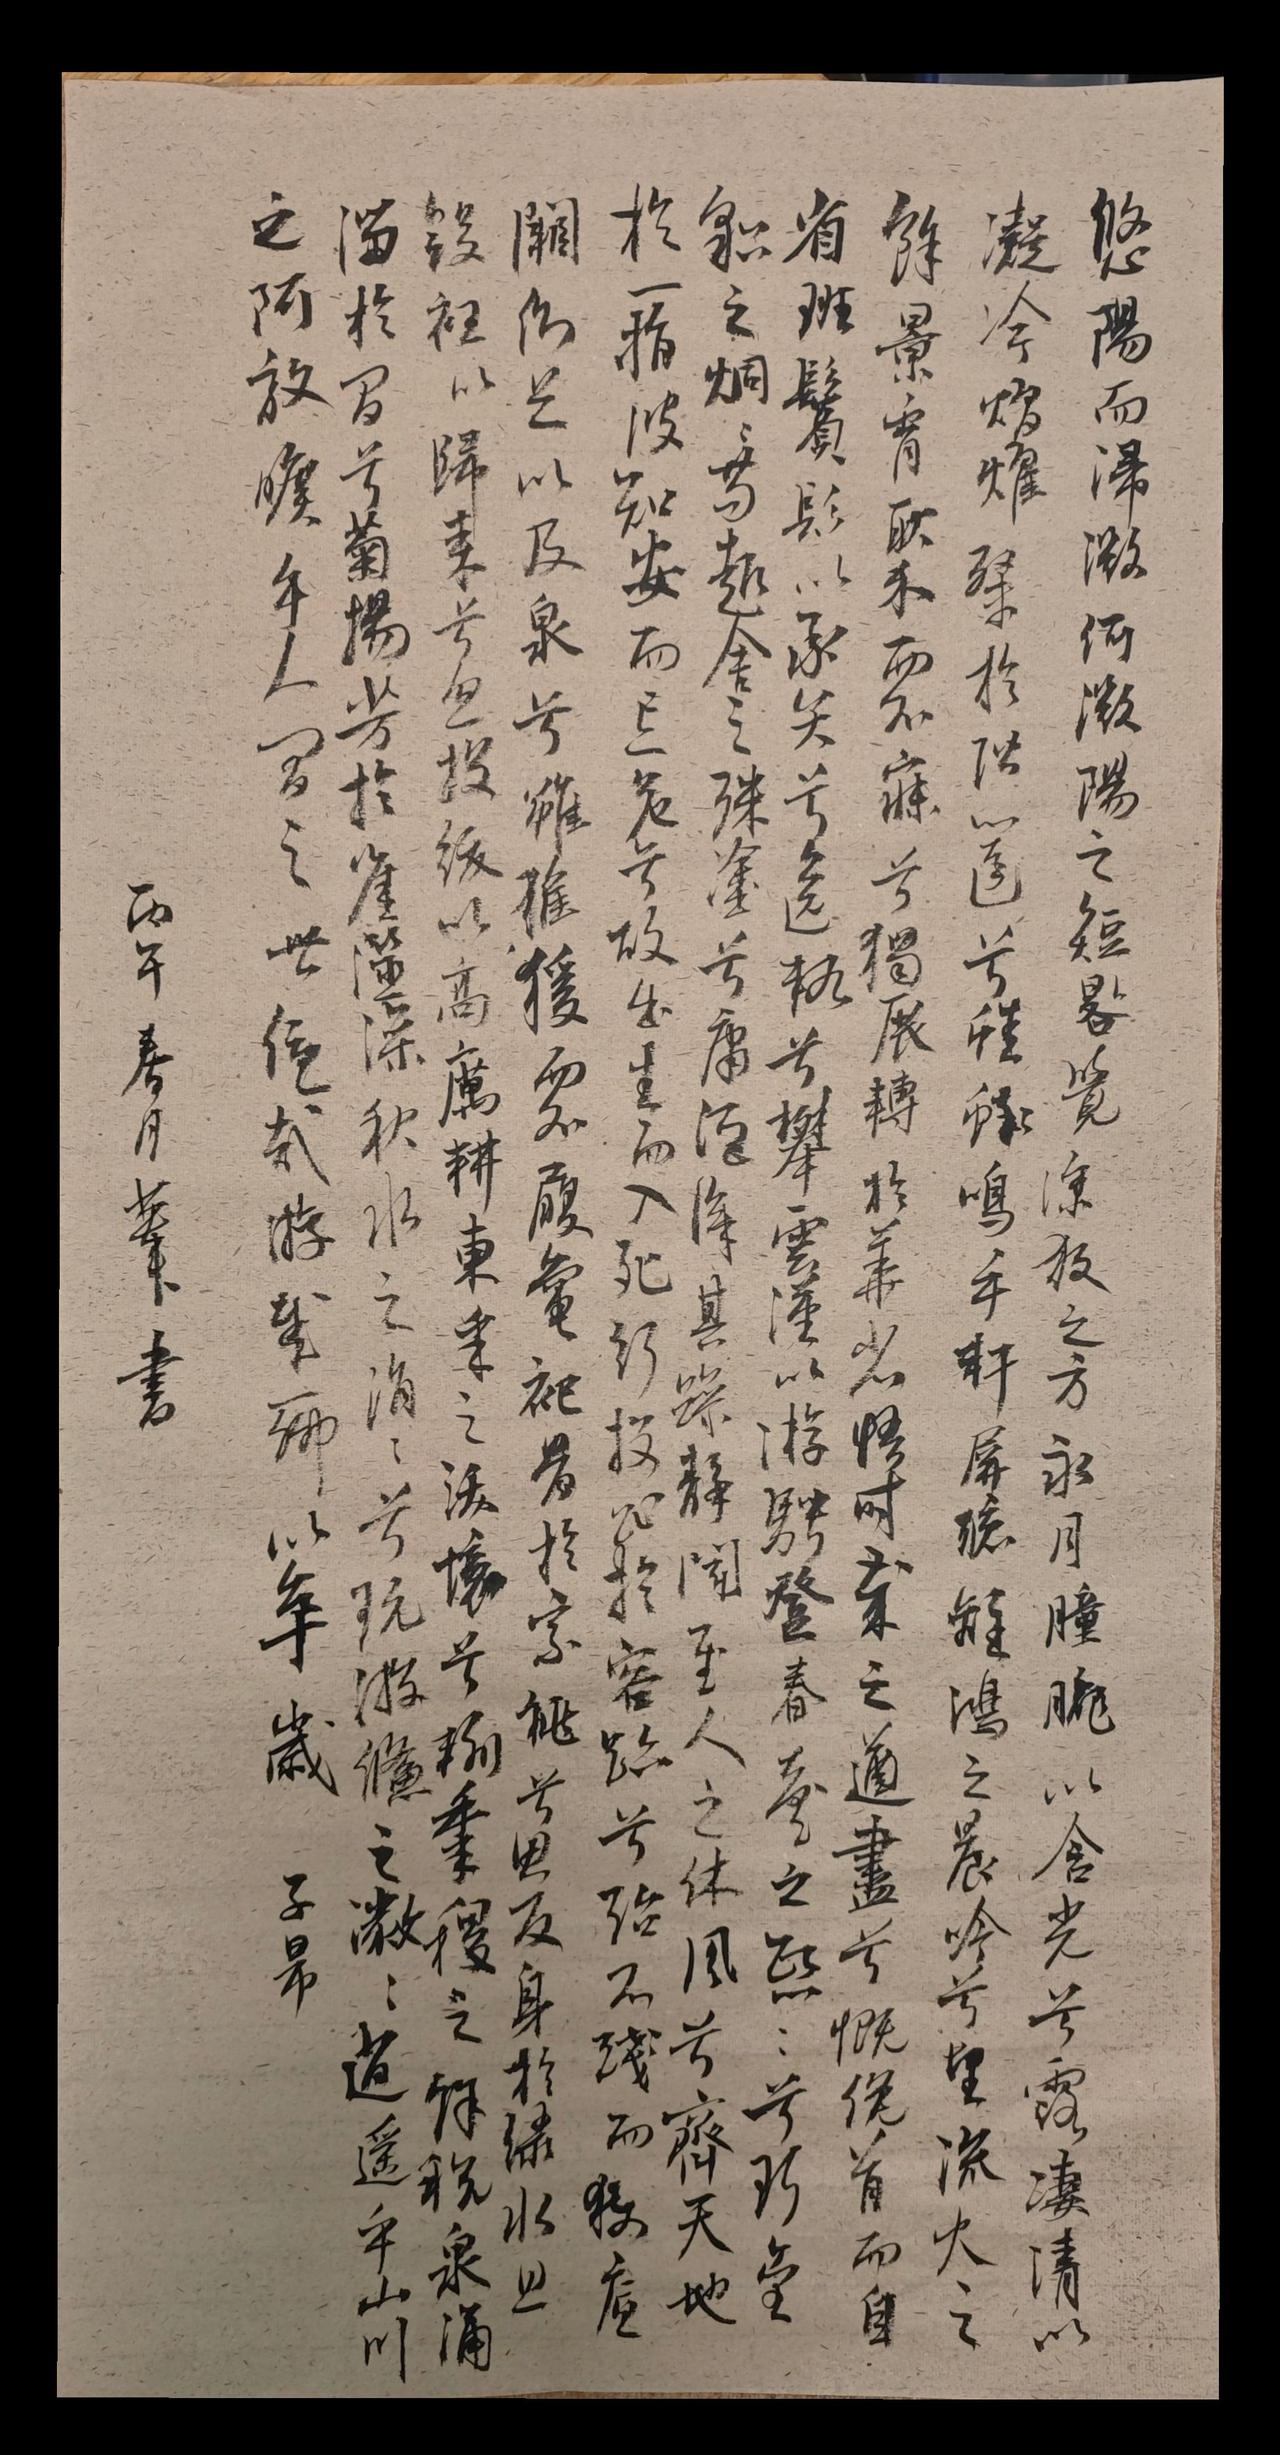 悠陽而浸微何微陽之短晷覺涼夜之方永月朣朧以含光兮露凄清以
凝冷熠燿粲於階闥兮蟋蟀鳴乎軒屏聽離鴻之晨吟兮望流火之
餘景宵耿介而不寐兮獨展轉於華省悟時歲之遒盡兮慨俛首而自
省班鬢髟以承弁兮逸軌兮攀雲漢以游騁登春臺之熙〻兮珥金
貂之炯〻苟趣舍之殊塗兮庸詎識其躁靜聞至人之休風兮齊天地
於一指彼知安而忘危兮故出生而入死行投趾於容跡兮殆不踐而獲底
闕側足以及泉兮雖猴猨而不履龜祀骨於宗祧兮思反身於綠水且
斂衽以歸來兮忽投紱以高厲耕東皋之沃壤兮輸黍稷之餘稅泉涌
湍於間兮菊揚芳於崖澨澡秋水之涓〻兮玩游鯈之潎〻逍遙乎山川
之阿放曠乎人間之世優哉游哉聊以卒歲 子昂
丙午春月書